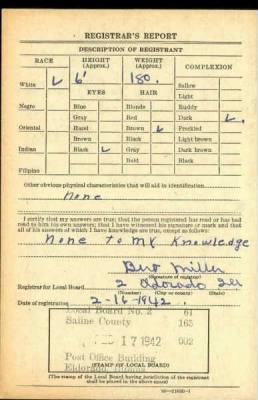 REGISTRAR'S REPORT
DESCRIPTION OF REGISTRANT
RACE HEIGHT (Approx.) WEIGHT (Approx.) COMPLEXION
White ✓ 6' 180. Sallow
Light
EYES HAIR
Negro Blue Blonde Ruddy
Gray Red Dark ✓
Oriental Hazel Brown ✓ Freckled
Brown Black Light brown
Indian Black ✓ Gray Dark brown
Bald Black
Filipino
Other obvious physical characteristics that will aid in identification
None
I certify that my answers are true; that the person registered has read or has had
read to him his own answers; that I have witnessed his signature or mark and that
all of his answers of which I have knowledge are true, except as follows:
None to my Knowledge
Bert Miller
Registrar for Local Board 2
(Number) (City or county) (State)
Date of registration 2-16-1942
Local Board No. 2 61
Saline County 165
17 1942 002
Post Office Building
Eldorado, Illinois
(STAMP OF LOCAL BOARD)
(The stamp of the Local Board having jurisdiction of the registrant
shall be placed in the above space.)